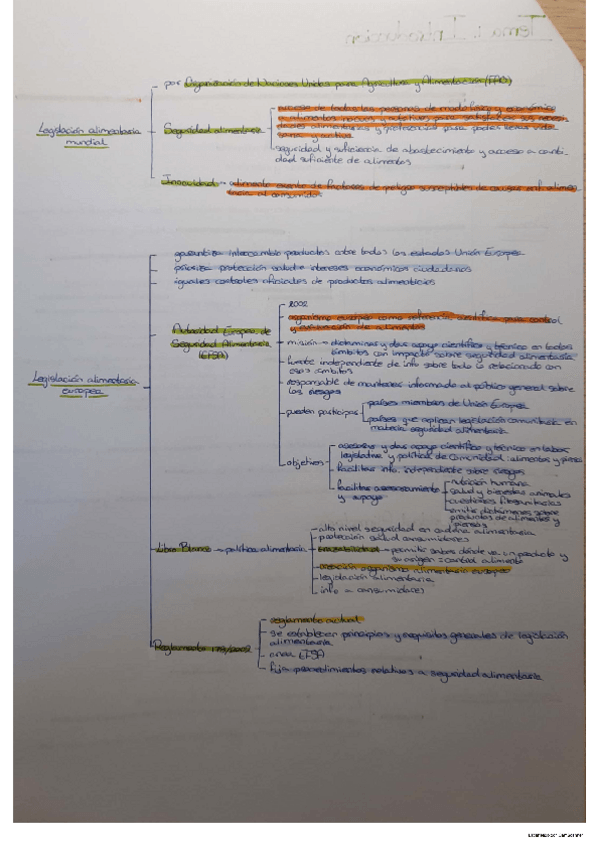 Tema 1: Introducción
por Organización de Naciones Unidas para Agricultura y Alimentación (FAO)
Legislación alimentaria
mundial
Seguridad alimentaria
acceso de todas las personas de modo físico y económico
a alimentos inocuos y nutritivos para satisfacer sus necesi-
dades alimentarias y preferencias para poder llevar vida
sana y activa
seguridad y suficiencia de abastecimiento y acceso a canti-
dad suficiente de alimentos
Inocuidad → alimento exento de factores de peligro susceptibles de causar enfermedad
al consumidor
garantiza intercambio productos entre todos los estados Unión Europea
prioriza protección salud e intereses económicos ciudadanos
iguales controles oficiales de productos alimenticios
Legislación alimentaria
europea
Autoridad Europea de
Seguridad Alimentaria
(EFSA)
2002
organismo europeo como referencia científica para control
y evaluación de alimentos
misión → dictámenes y dar apoyo científico y técnico en todos
ámbitos con impacto sobre seguridad alimentaria
fuente independiente de info sobre todo lo relacionado con
esos ámbitos
responsable de mantener informado al público general sobre
los riesgos
pueden participar
países miembros de Unión Europea
países que aplican legislación comunitaria en
materia seguridad alimentaria
objetivos
asesorar y dar apoyo científico y técnico en labor
legislativa y políticas de Comunidad: alimentos y piensos
facilitar info. independiente sobre riesgos
facilitar asesoramiento
y apoyo
nutrición humana
salud y bienestar animales
cuestiones fitosanitarias
emitir dictámenes sobre
productos de alimentos y
piensos
Libro Blanco → política alimentaria
alto nivel seguridad en cadena alimentaria
protección salud consumidores
trazabilidad → permite saber dónde va un producto y
su origen = control alimento
creación organismo alimentario europeo
legislación alimentaria
info a consumidores
Reglamento 178/2002
reglamento actual
se establecen principios y requisitos generales de legislación
alimentaria
crea EFSA
fija procedimientos relativos a seguridad alimentaria